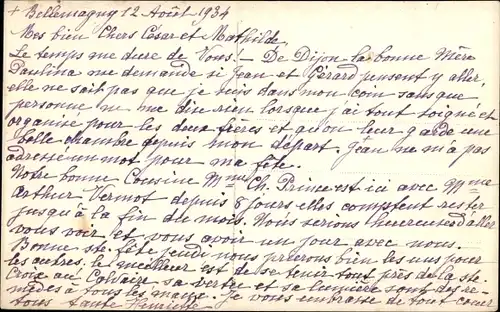 + Bellemagny 12 Août 1934
Mes bien Chers César et Mathilde
Le temps me dure de Vous. – De Dijon la bonne Mère
Paulina me demande si Jean et Gérard pensent y aller,
elle ne sait pas que je suis dans mon coin sans que
personne ne me dise rien lorsque j'ai tout soigné et
organisé pour les deux frères et qu'on leur garde une
belle chambre depuis mon départ. Jean ne m'a pas
adressé un mot pour ma fête.
Notre bonne Cousine Mme Ch. Prince est ici avec Mme
Arthur Vermot depuis 8 jours elles comptent rester
jusqu'à la fin du mois. Nous serions heureuses d'aller
vous voir et vous avoir un jour avec nous.
Bonne ste fête jeudi nous prierons bien les uns pour
les autres. le meilleur est de se tenir tout près de la ste
Croix au Calvaire sa vertu et sa lumière sont des re-
mèdes à tous les maux. Je vous embrasse de tout cœur
tous tante Henriette